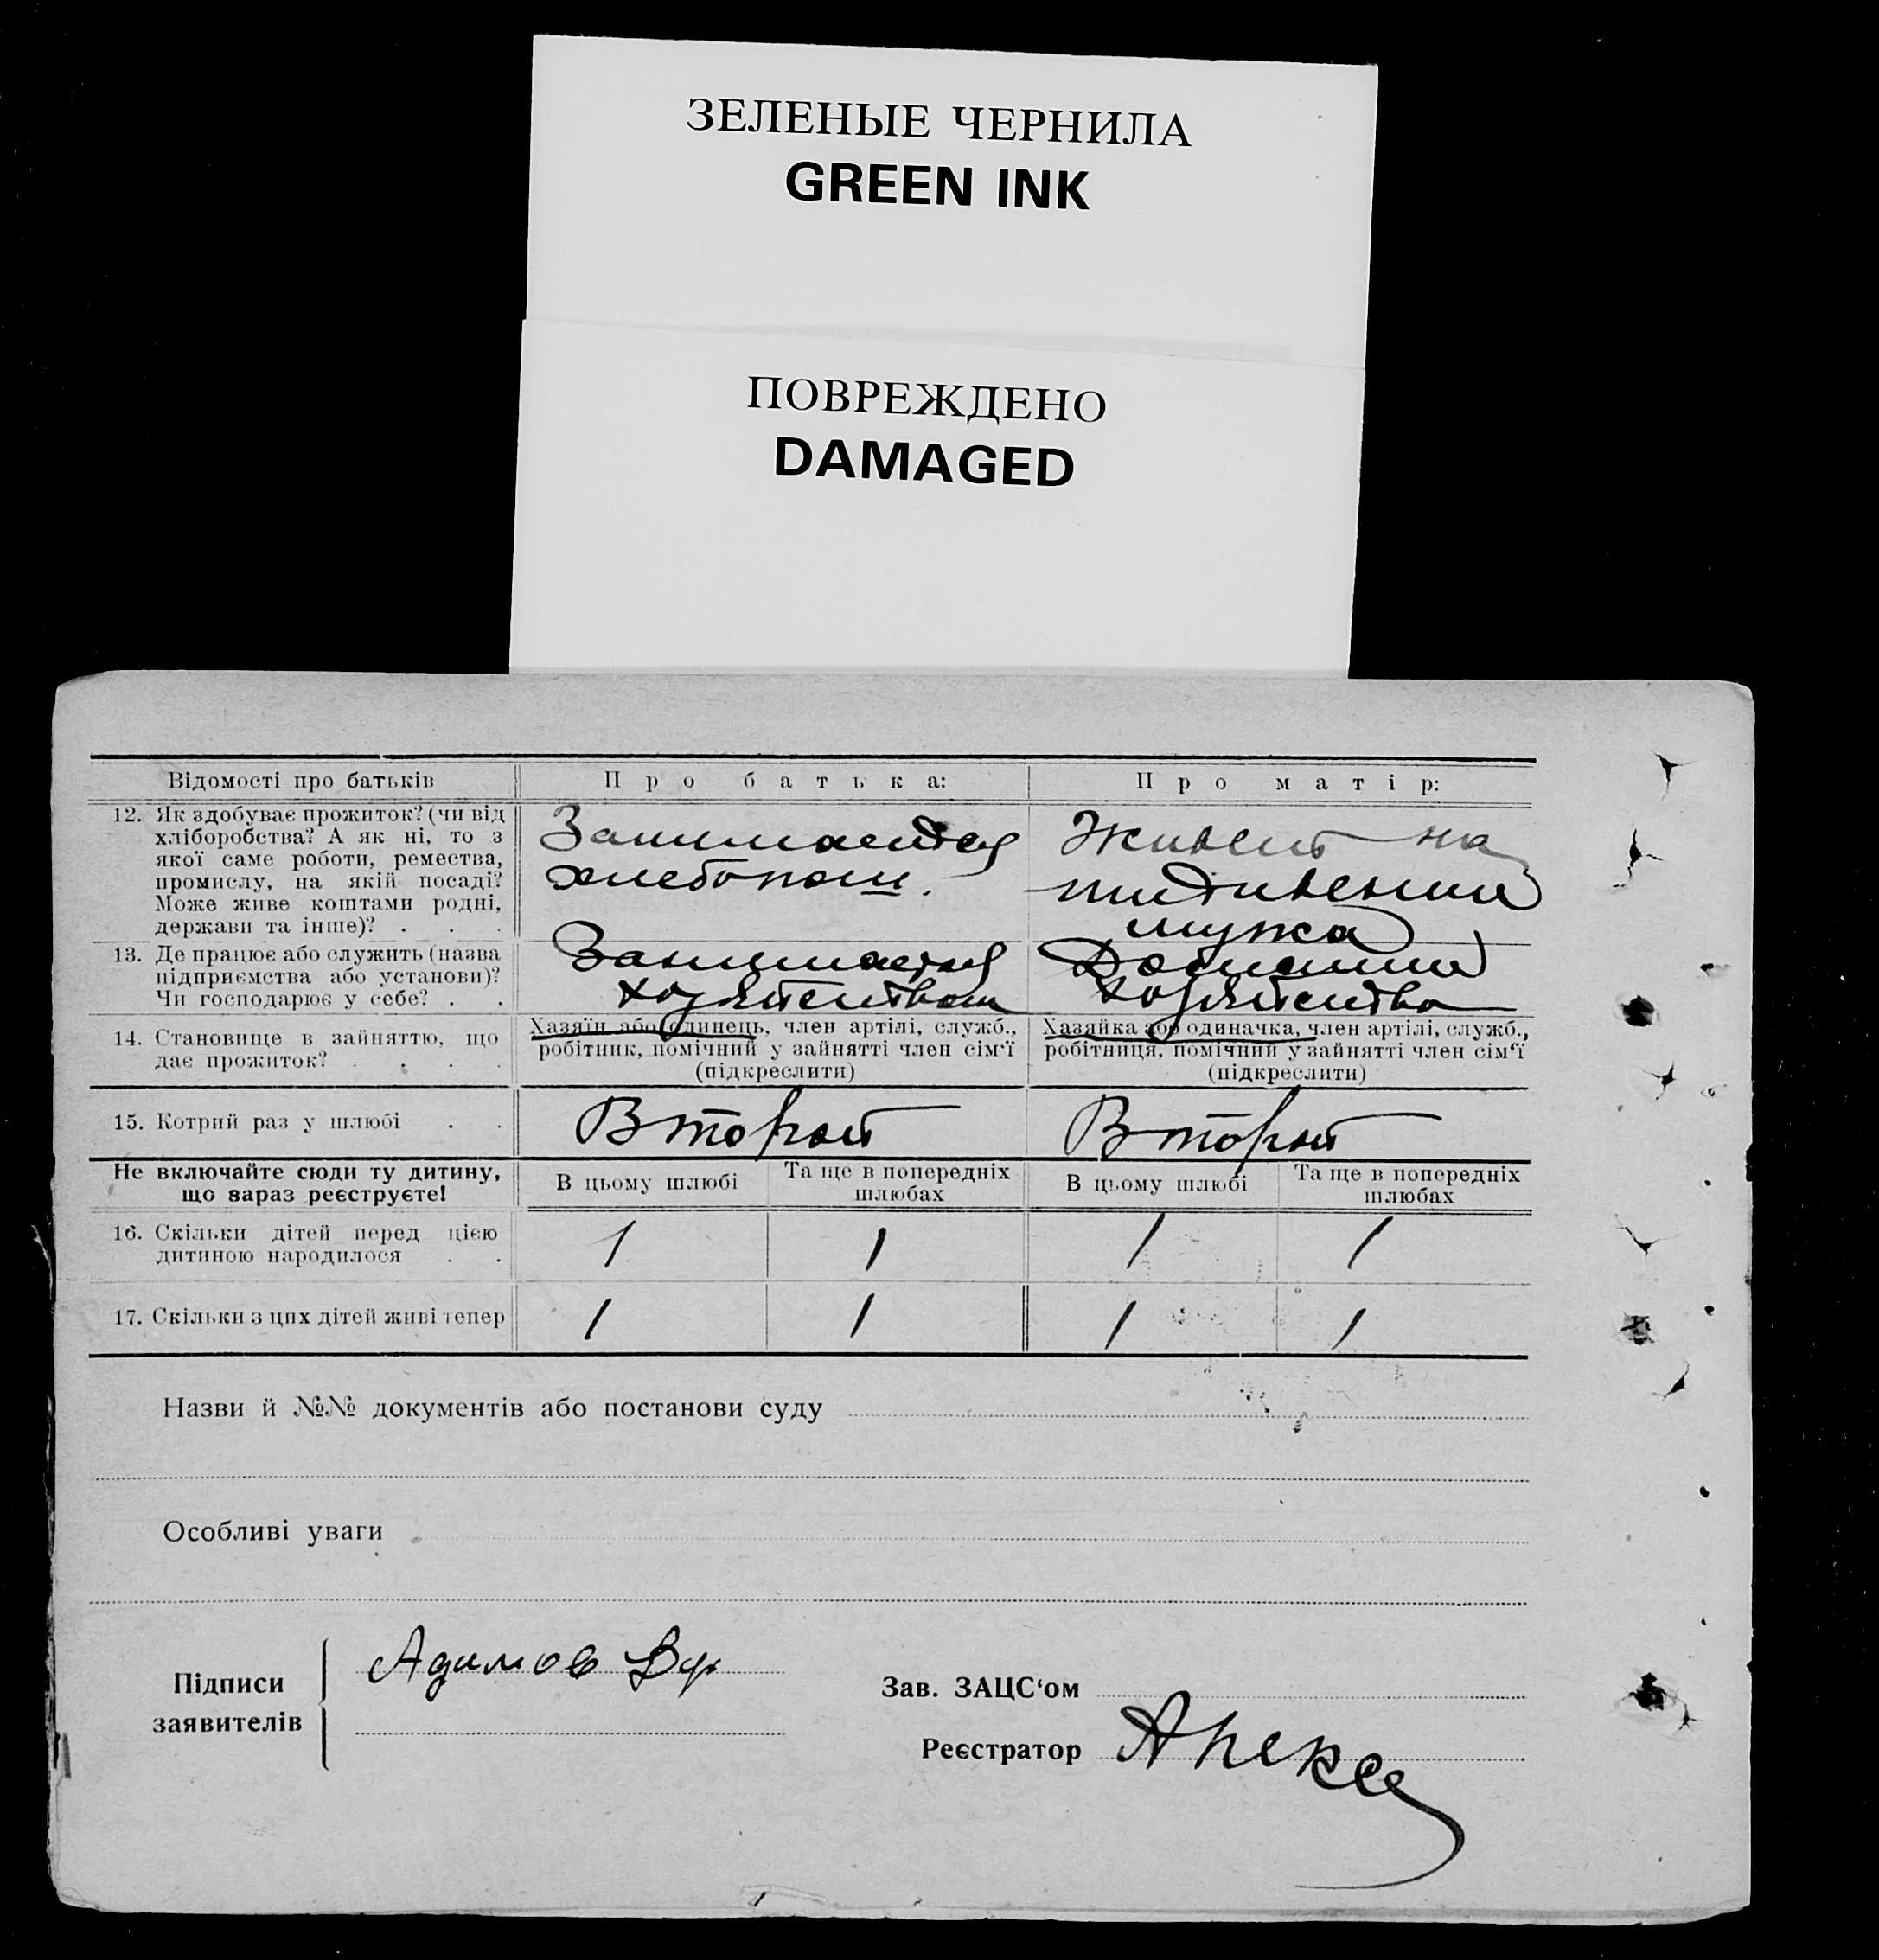 ЗЕЛЕНЫЕ ЧЕРНИЛА
GREEN INK
ПОВРЕЖДЕНО
DAMAGED
Відомості про батьків
Про батька:
Про матір:
12. Як здобуває прожиток? (чи від
хліборобства? А як ні, то з
якої саме роботи, ремества,
промислу, на якій посаді?
Може живе коштами родні,
держави та інше)? . . .
Занимается
хлебопаш.
Живет на
иждивении
мужа
13. Де працює або служить (назва
підприємства або установи)?
Чи господарює у себе? . .
Занимается
хозяйством
Домашним
хозяйство
14. Становище в зайняттю, що
дає прожиток? . . . .
Хазяїн або одинець, член артілі, служб.,
робітник, помічний у зайнятті член сім'ї
(підкреслити)
Хазяйка або одиначка, член артілі, служб.,
робітниця, помічний у зайнятті член сім'ї
(підкреслити)
15. Котрий раз у шлюбі . .
Второй
Второй
Не включайте сюди ту дитину,
що зараз реєструєте!
В цьому шлюбі
Та ще в попередніх
шлюбах
В цьому шлюбі
Та ще в попередніх
шлюбах
16. Скільки дітей перед цією
дитиною народилося . .
1 1 1 1
17. Скільки з цих дітей живі тепер
1 1 1 1
Назви й №№ документів або постанови суду
Особливі уваги
Підписи
заявителів
Адамов
Зав. ЗАЦС'ом
Реєстратор